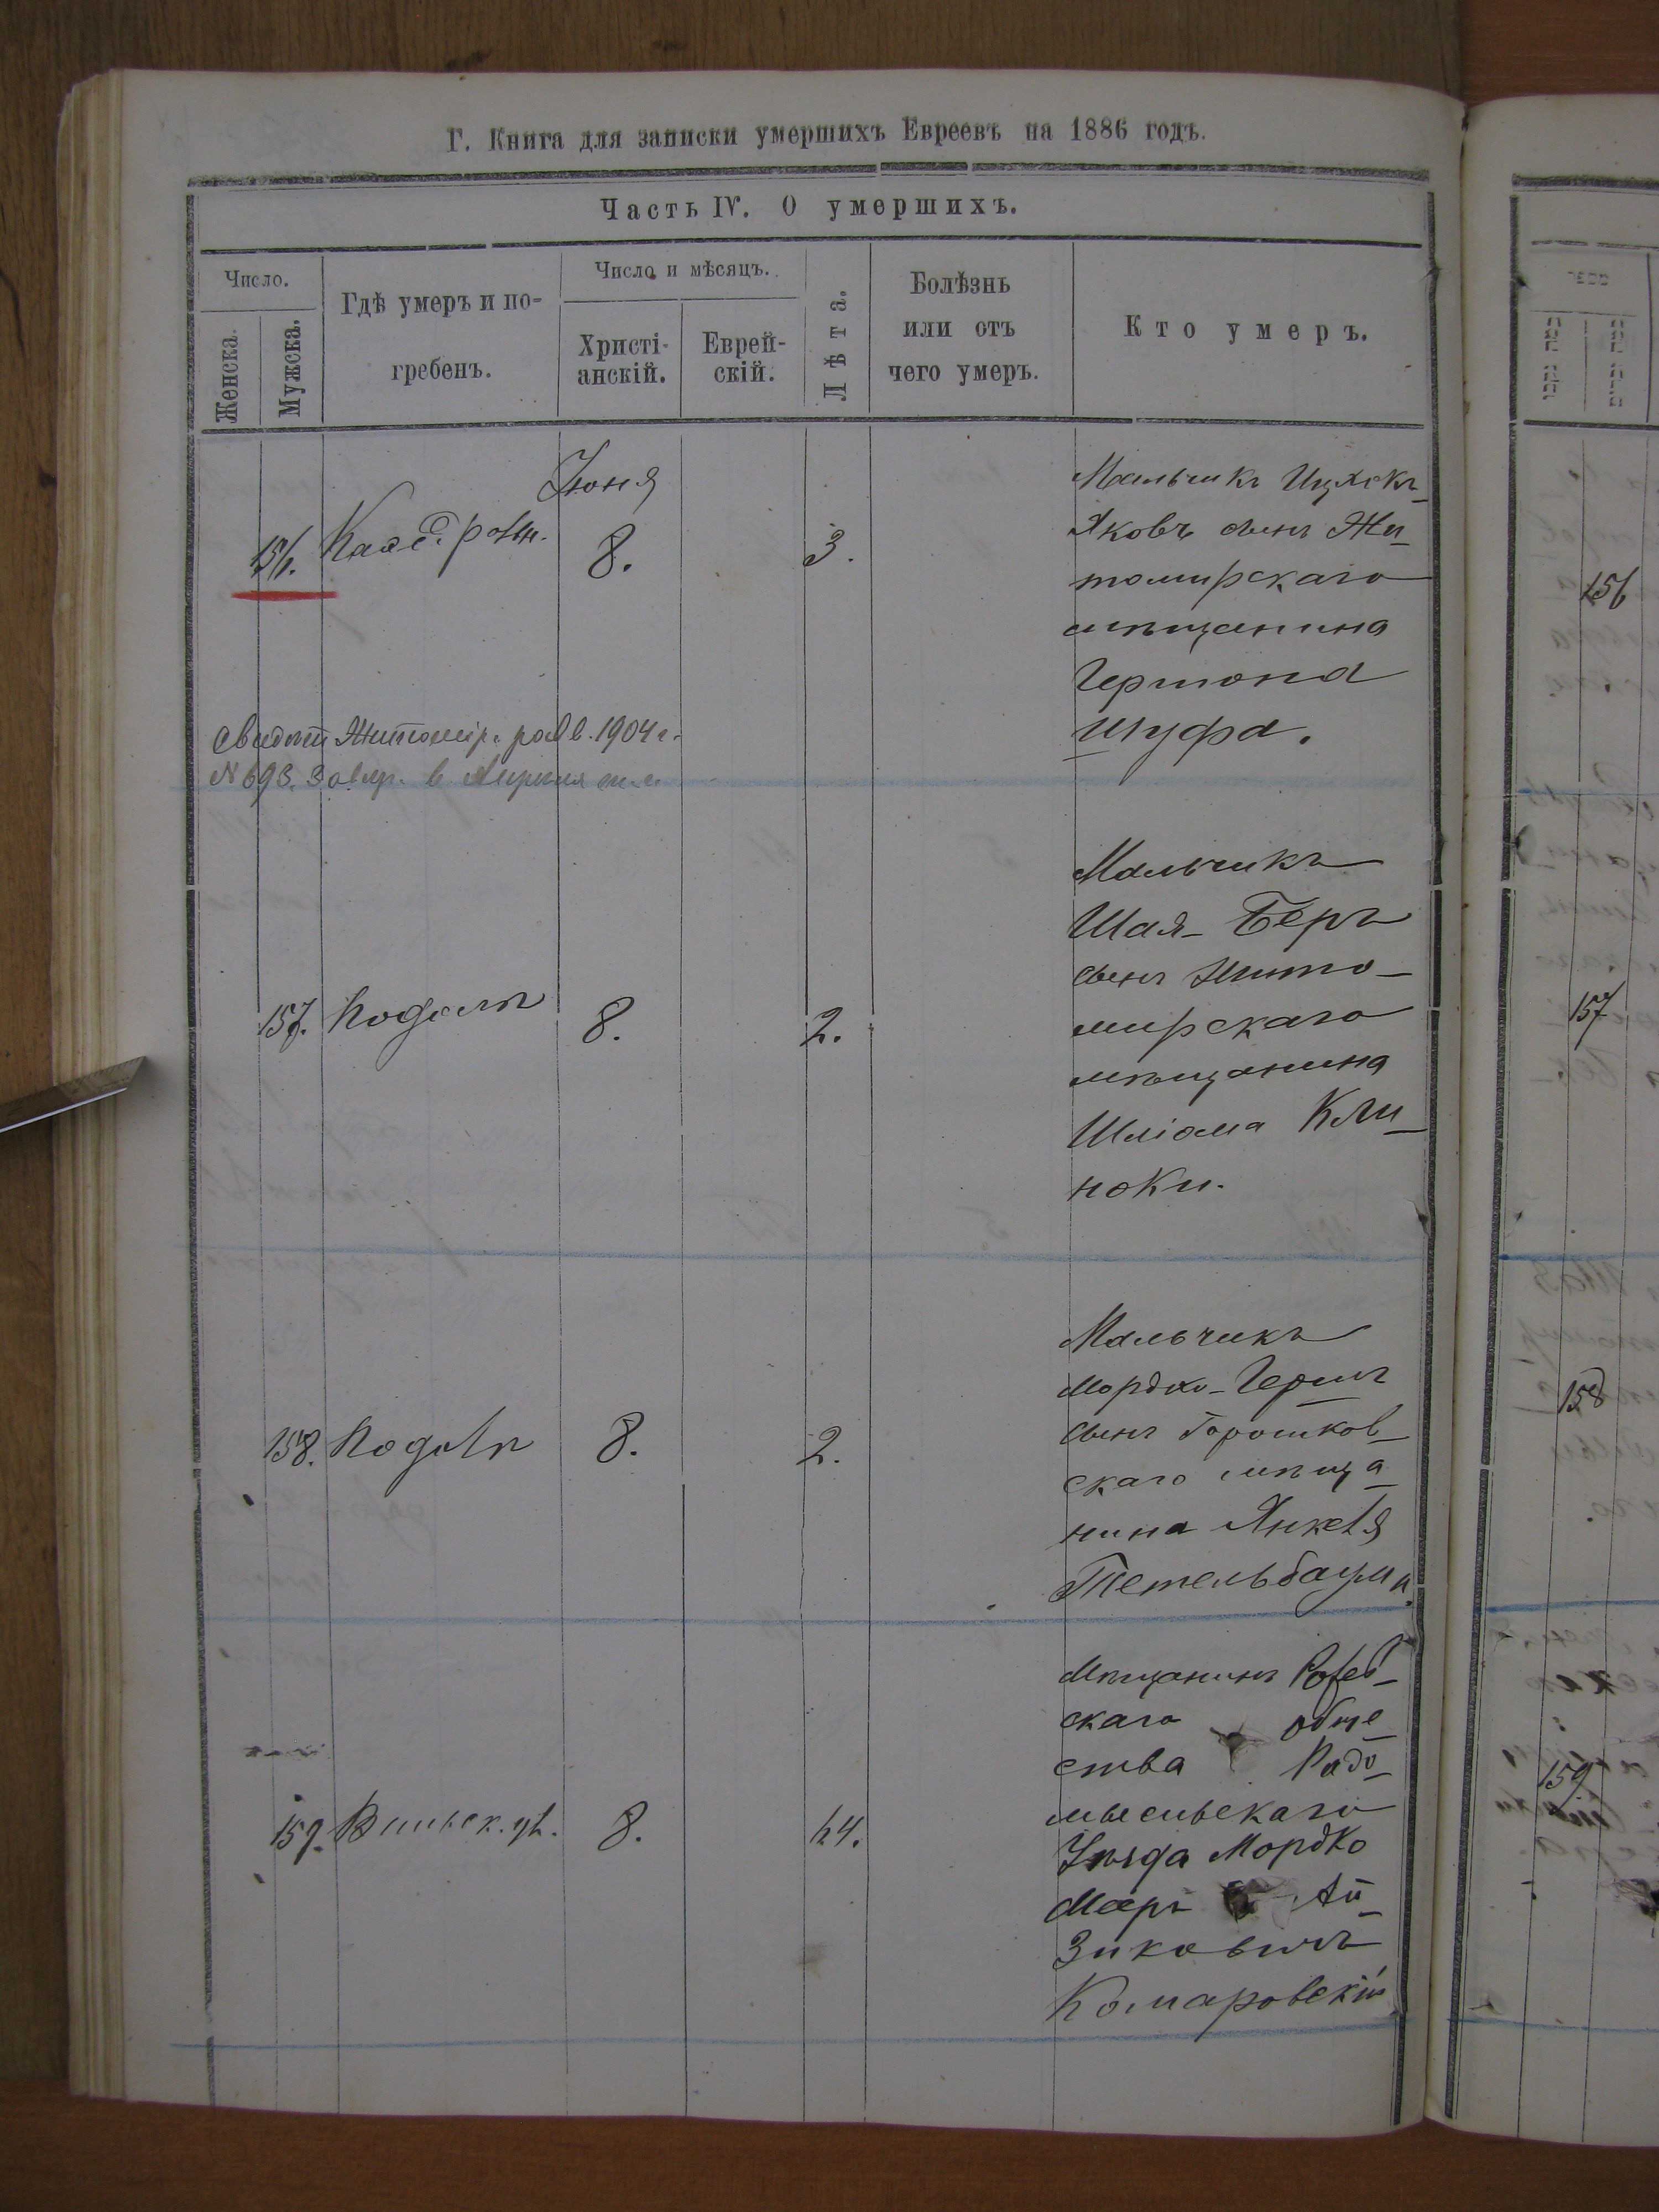 Г. Книга для записки умершихъ Евреевъ на 1886 годъ.
Часть IV. О умершихъ.
Число.
Женска.
Мужска.
Гдѣ умеръ и по-
гребенъ.
Число и мѣсяцъ.
Христі-
анскій.
Еврей-
скій.
Лѣта.
Болѣзнь
или отъ
чего умеръ.
Кто умеръ.
Іюня
156. 8. 3.
Мальчикъ Ицхокъ-
Яковъ сынъ Жи-
томирскаго
мѣщанина
Гершона
Шуфа.
Свидѣт Житомір. равв. 1904 г.
№ 693.
157. Подолъ 8. 2.
Мальчикъ
Шая-Беръ
сынъ Жито-
мирскаго
мѣщанина
Шліома Кли-
ноки.
158. Подолъ 8. 2.
Мальчикъ
Мордко-Гершъ
сынъ Горошков-
скаго мѣща-
нина Янкеля
Тетельбаума.
159. Вильск. ул. 8. 64.
Мѣщанинъ
скаго обще-
ства Радо-
мысльскаго
Уѣзда Мордко
Мееръ Ай-
зиковичъ
Комаровскій
156
157
158
159